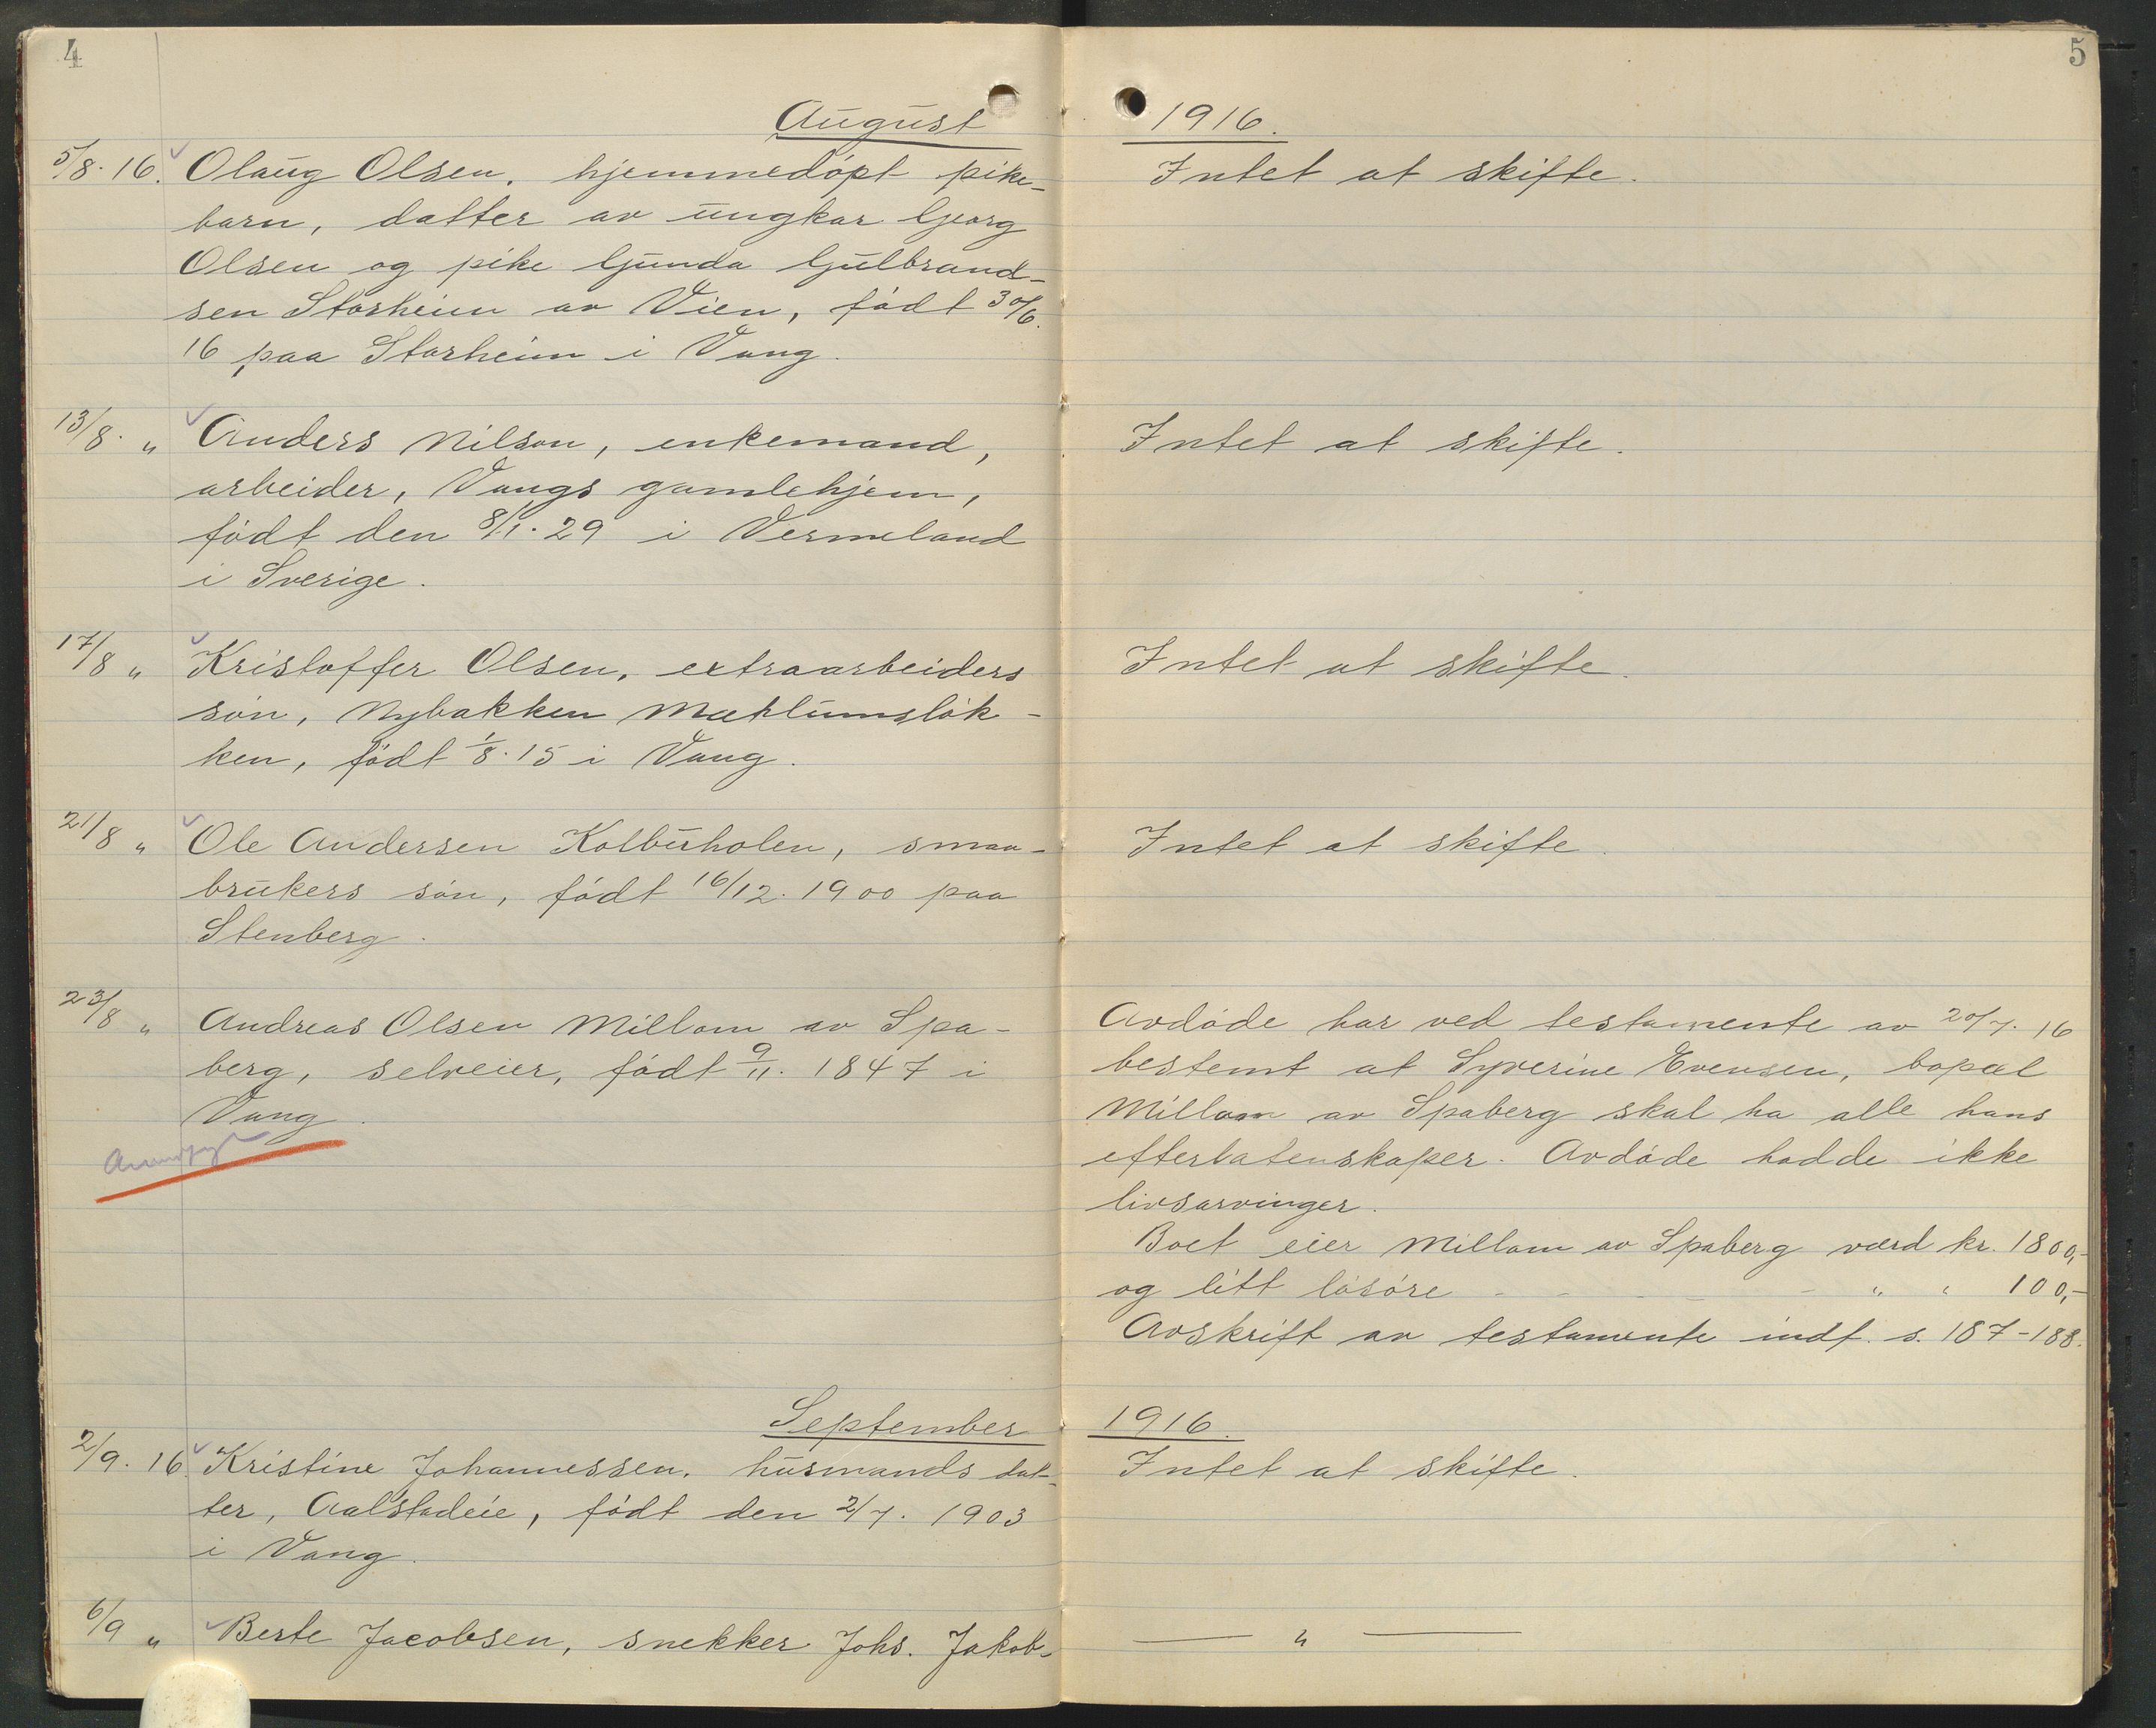 4
August
5/8. 16. Olaug Olsen, hjemmedöpt pike-
barn, datter av ungkar Georg
Olsen og pike Gunda Gulbrand-
sen Storheim av Vien, född 30/6.
16 paa Storheim i Vang.
13/8. " Anders Nilson, enkemand,
arbeider, Vangs gamlehjem,
födt den 8/1. 29 i Vermeland
i Sverige.
17/8 " Kristoffer Olsen, extraarbeiders
sön, Nybakken Mæhlumslök-
ken, födt 1/8. 15 i Vang.
21/8 " Ole Andersen Kolbuholen, smaa-
brukers sön, födt 16/12. 1900 paa
Stenberg.
23/8 " Andreas Olsen Millom av Spa-
berg, selveier, födt 9/11. 1847 i
Vang.
September
2/9. 16. Kristine Johannessen, husmands dat-
ter, Aalstadeie, födt den 2/7. 1903
i Vang.
6/9 " Berte Jacobsen, snekker Johs. Jakob-
5
1916.
Intet at skifte.
Intet at skifte.
Intet at skifte.
Intet at skifte.
Avdöde har ved testamente av 20/7. 16
bestemt at Syverine Evensen, bopæl
Millom av Spaberg skal ha alle hans
efterlatenskaper. Avdöde hadde ikke
livsarvinger.
Boet eier Millom av Spaberg værd kr. 1800,-
og litt lösöre - - - - - " " 100,-
Avskrift av testamente indf. s. 187-188.
1916.
Intet at skifte.
— " —